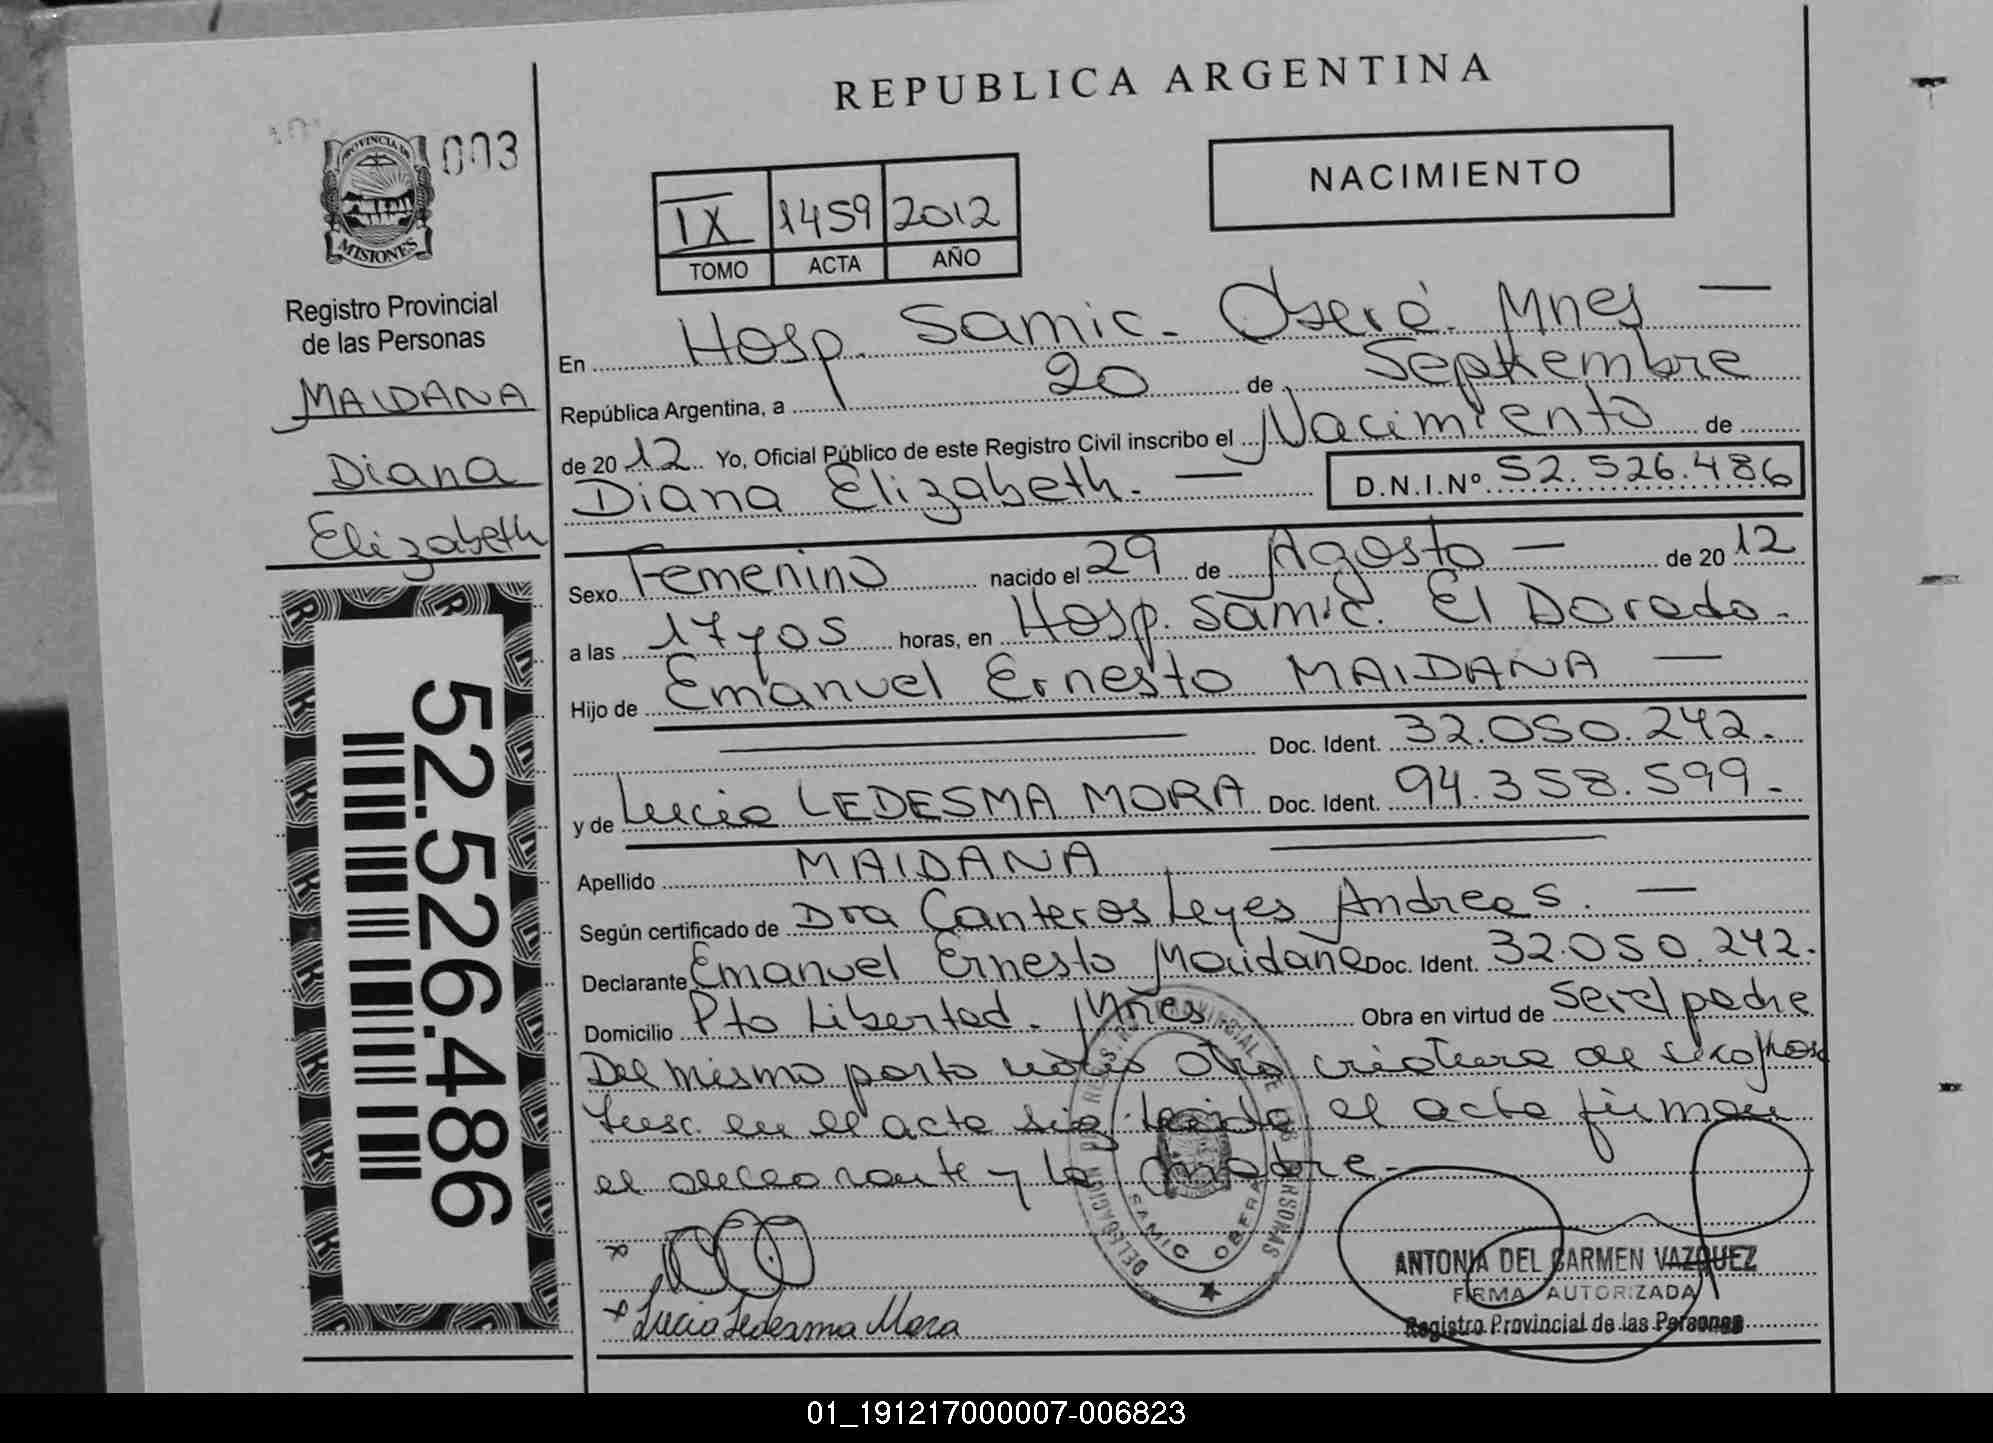 REPUBLICA ARGENTINA
NACIMIENTO
PROVINCIA DE
MISIONES
003
Registro Provincial
de las Personas
MAIDANA
Diana
Elizabeth
52.526.486
IX 1459 2012
TOMO ACTA AÑO
En Hosp. Samic. Oberá. Mnes —
República Argentina, a 20 de Septiembre
de 2012 Yo, Oficial Público de este Registro Civil inscribo el Nacimiento de
Diana Elizabeth. — D.N.I.Nº 52.526.486
Sexo Femenino nacido el 29 de Agosto — de 2012
a las 17 y 05 horas, en Hosp. Samic. El Dorado.
Hijo de Emanuel Ernesto MAIDANA —
Doc. Ident. 32.050.242.
y de Lucia LEDESMA MORA Doc. Ident. 94.358.599.
Apellido MAIDANA
Según certificado de Dra Canteros Leyes Andrea S. —
Declarante Emanuel Ernesto Maidana Doc. Ident. 32.050.242.
Domicilio Pto Libertad. Mnes Obra en virtud de ser el padre
Del mismo parto nació otra criatura de
en el acta sig. leida el acta firman
el declarante y la madre.
DELEGACION DEL REGISTRO PROVINCIAL DE LAS PERSONAS
SAMIC OBERA
x
x Lucia Ledesma Mora
ANTONIA DEL CARMEN VAZQUEZ
FIRMA AUTORIZADA
Registro Provincial de las Personas
01_191217000007-006823